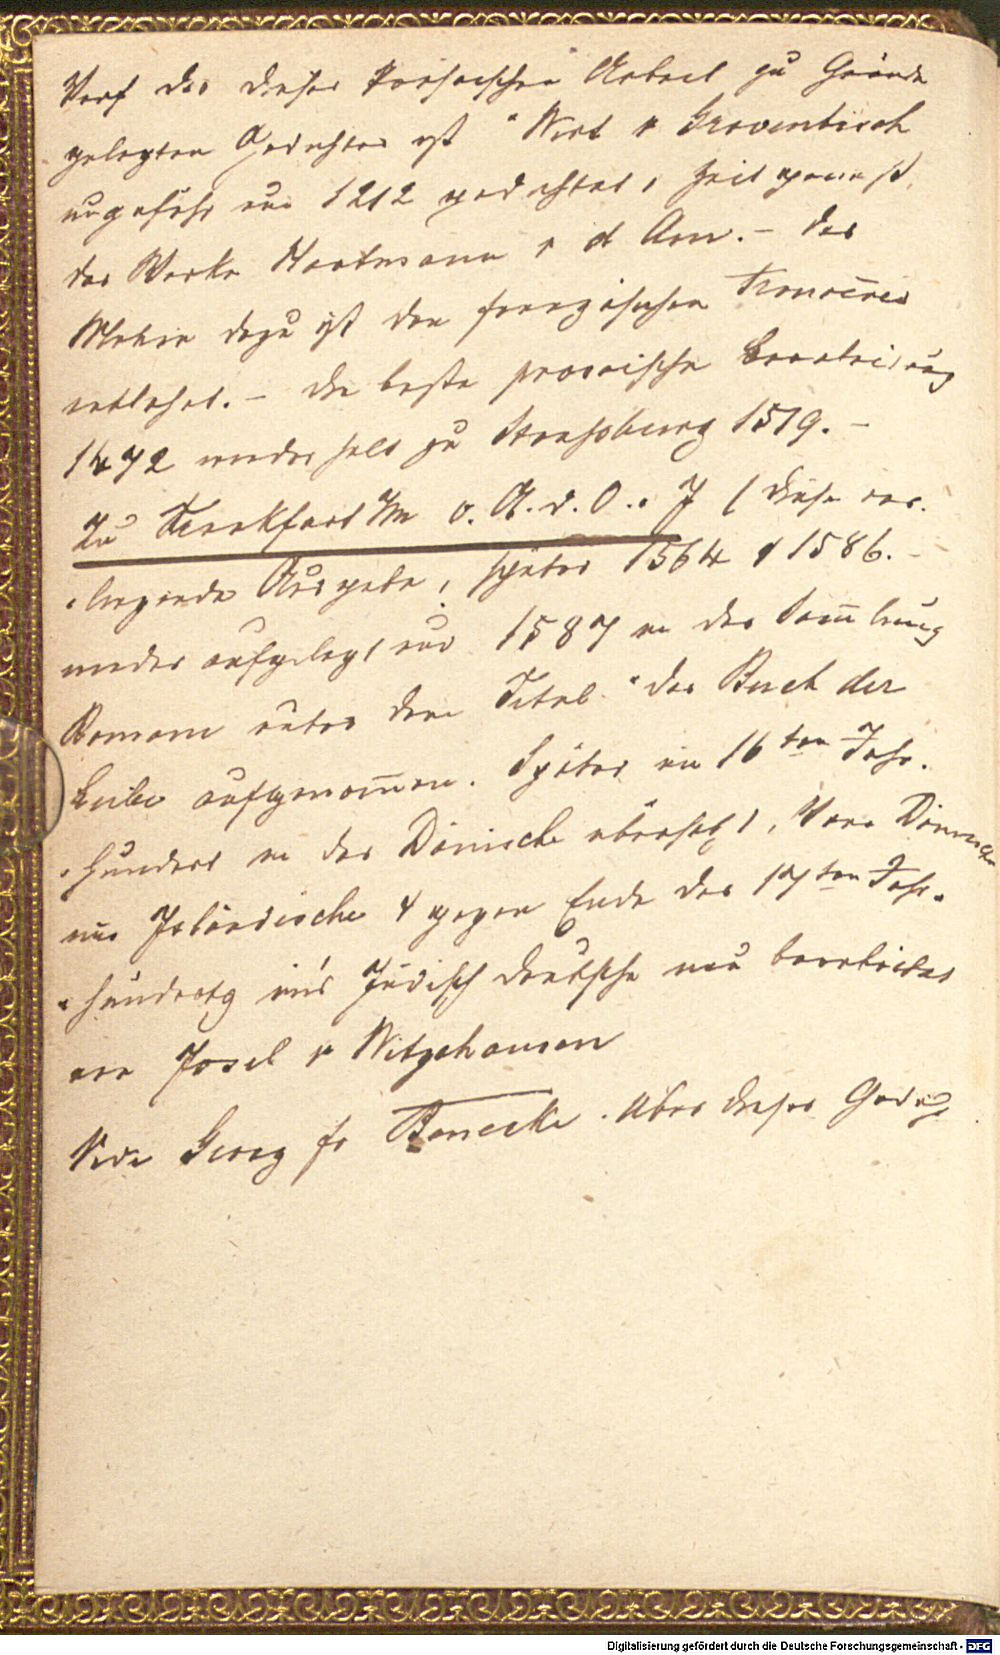 Verf des dieser prosaischen Arbeit zu Grunde
gelegten Gedichtes ist "Wirt v Gravenberch
ungefähr um 1212 gedichtet, Zeitgenoss,
der Werke Hartmann v d Aue. – Das
Mehre dazu ist den französischen
entlehnt. – Die beste prosaische Bearbeitung
1472 wieder holt zu Strassburg 1519. –
Zu Frankfurt M o. A. d. O. J (diese vor-
-liegende Ausgabe, später 1564 & 1586. –
wieder aufgelegt und 1587 in der Sam̅lung
Romane unter dem Titel "das Buch der
Liebe aufgenom̅en. Später im 16ten Jahr-
-hundert in das Dänische übersetzt, Vom Dänischen
ins Isländische & gegen Ende des 17ten Jahr-
-hunderts in's Jüdisch deutsche neu bearbeitet
von Josel v Witzehausen
Vide Georg fr Benecke. über dieses Gedicht
Digitalisierung gefördert durch die Deutsche Forschungsgemeinschaft - DFG